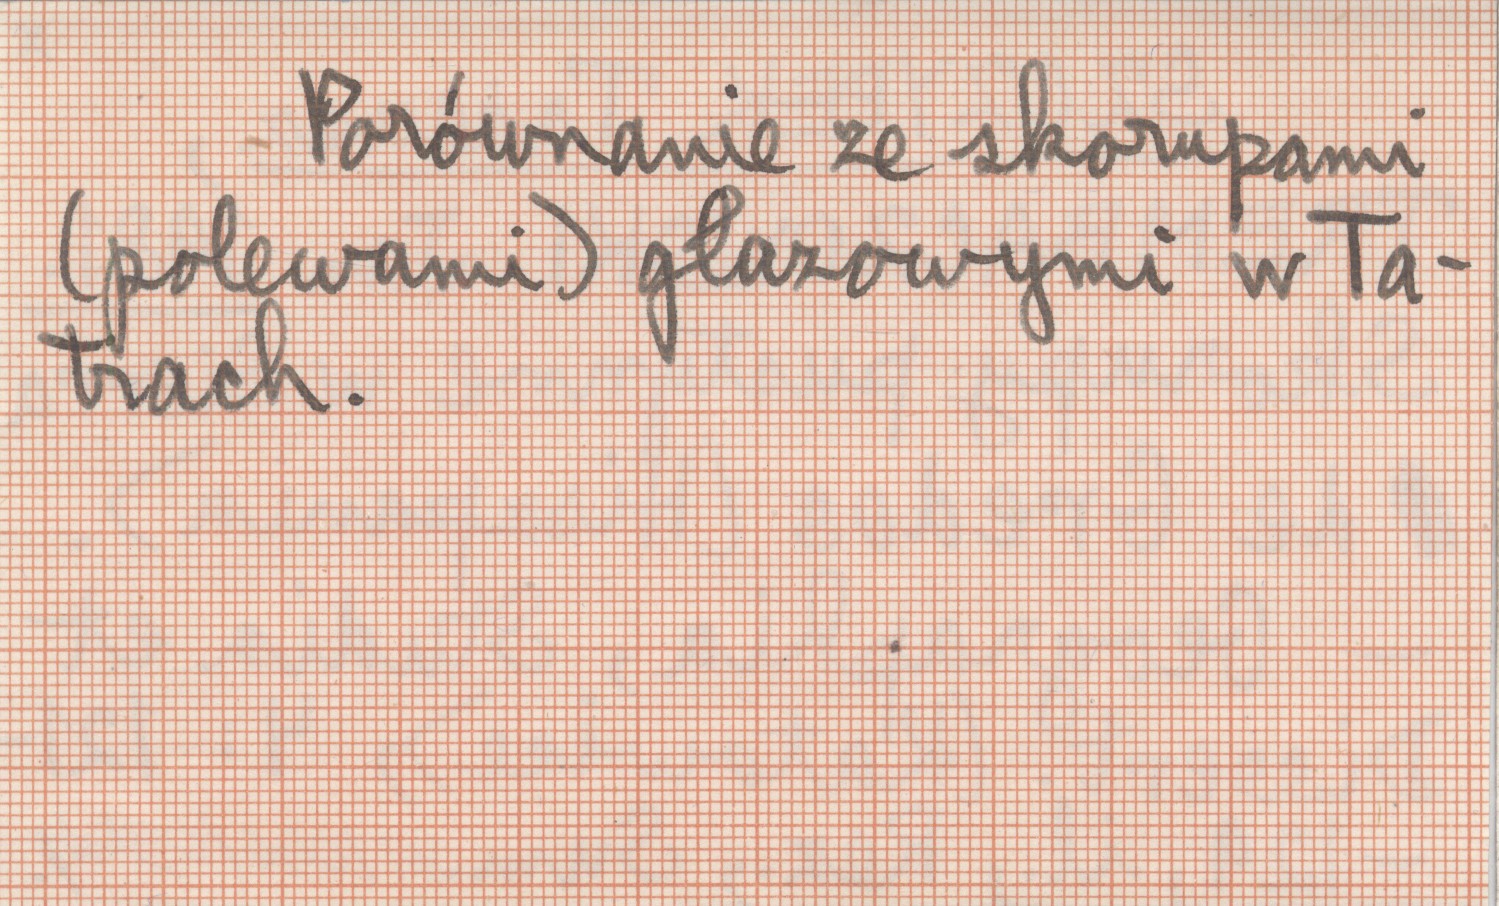 Porównanie ze skorupami
(polewami) głazowymi w Ta-
trach.